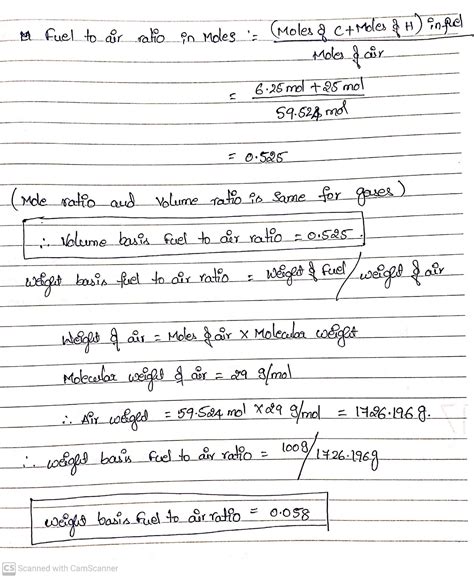 Fuel to air ratio in Moles := (Moles of C + Moles of H) in fuel
Moles of air
= 6.25 mol + 25 mol
59.524 mol
= 0.525
(Mole ratio and Volume ratio is same for gases)
∴ Volume basis Fuel to air ratio = 0.525
Weight basis fuel to air ratio = Weight of Fuel / weight of air
Weight of air = Moles of air × Molecular weight
Molecular weight of air = 29 g/mol
∴ Air weight = 59.524 mol × 29 g/mol = 1726.196 g.
∴ weight basis Fuel to air ratio = 100g / 1726.196g
weight basis Fuel to air ratio = 0.058
CS Scanned with CamScanner